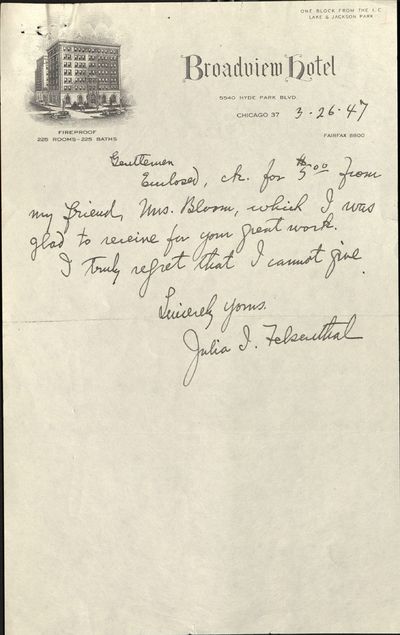 ONE BLOCK FROM THE I.C.
LAKE & JACKSON PARK
Broadview Hotel
5540 HYDE PARK BLVD.
CHICAGO 37 3-26-47
FIREPROOF
225 ROOMS - 225 BATHS
FAIRFAX 8800
Gentlemen
Enclosed, ck. for $5.00 from
my friend, Mrs. Bloom, which I was
glad to receive for your great work.
I truly regret that I cannot give.
Sincerely yours.
Julia I. Felsenthal